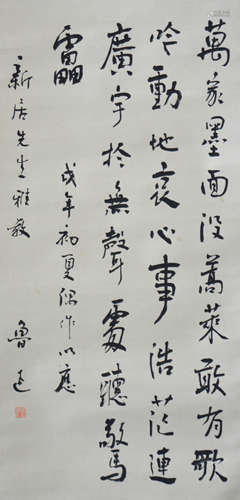 萬家墨面没蒿萊敢有歌
吟動地哀心事浩茫連
廣宇於無聲處聽驚
靁 戌年初夏偶作以應
新居先生雅教
魯迅